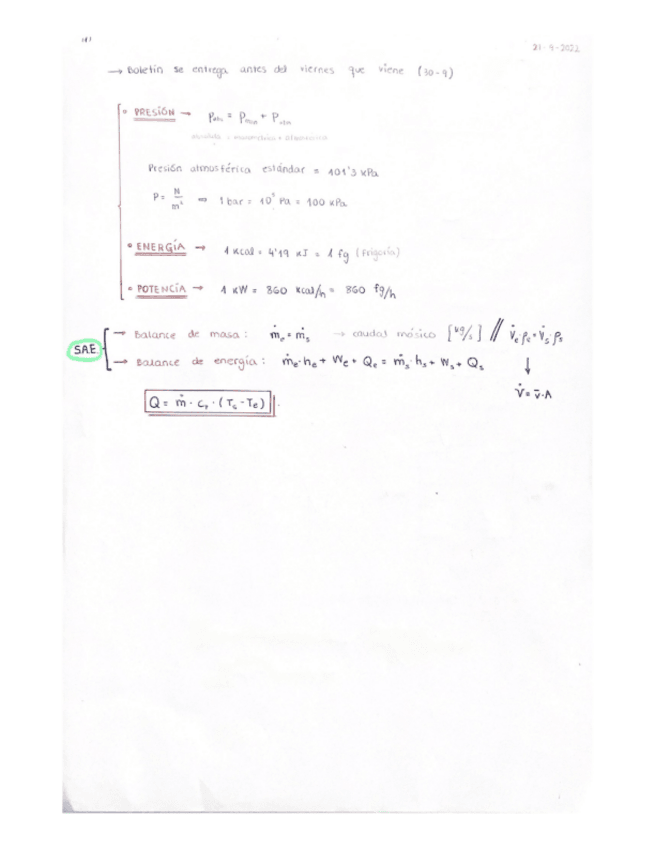 21-9-2022
→ Boletín se entrega antes del viernes que viene (30-9)
• PRESIÓN → Pabs = Pman + Patm
absoluta = manométrica + atmosférica
Presión atmosférica estándar = 101'3 kPa
P = N/m² ⇒ 1 bar = 10⁵ Pa = 100 kPa
• ENERGÍA → 1 Kcal = 4'19 KJ = 1 fg (Frigoría)
• POTENCIA → 1 KW = 860 Kcal/h = 860 fg/h
SAE
→ Balance de masa: ṁe = ṁs → caudal másico [kg/s] // V̇e·ρe = V̇s·ρs
→ Balance de energía: ṁe·he + We + Qe = ṁs·hs + Ws + Qs
↓
V̇ = v̄·A
Q = ṁ·cp·(Ts - Te)